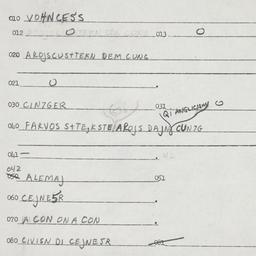 010 VOHNCESS
012 O 013 O
020 AROJSCUSTTEKN DEM CUNG
021 O
030 CINZGER 031 Qi ANGLICJANY O
040 FARVOS STTEJKSTE/AROJS DAJNJ CUNZG
041 —
042 050 ALEMAJ 051
060 CEJNESR
070 A CON ON A CON
080 CIVISN DI CEJNESR 081